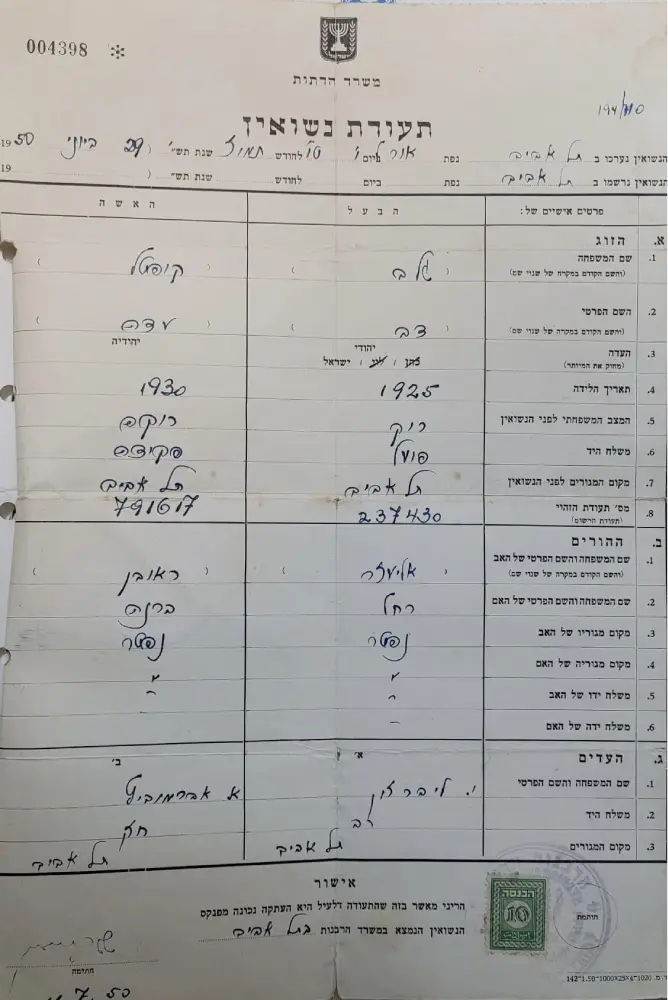 004398 *
משרד הדתות
194/710
תעודת נשואין
הנשואין נערכו ב תל אביב נפת ביום ו' לחודש תמוז שנת תש"י ( 29 ביוני 1950
הנשואין נרשמו ב תל אביב נפת ביום לחודש שנת תש" ( 19
פרטים אישיים של: הבעל האשה
א. הזוג
1. שם המשפחה גלב קופטל
(והשם הקודם במקרה של שנוי שם) ( ) ( )
2. השם הפרטי דב עדה
(והשם הקודם במקרה של שנוי שם) ( ) ( )
3. העדה יהודי יהודיה
(מחוק את המיותר) כהן, לוי, ישראל
4. תאריך הלידה 1925 1930
5. המצב המשפחתי לפני הנשואין רוק רוקה
6. משלח היד פועל פקידה
7. מקום המגורים לפני הנשואין תל אביב תל אביב
8. מס' תעודת הזהוי 237430 791617
(תעודת הרשום)
ב. ההורים
1. שם המשפחה והשם הפרטי של האב אליעזר ראובן
(והשם הקודם במקרה של שנוי שם) ( ) ( )
2. שם המשפחה והשם הפרטי של האם רחל ברכה
3. מקום מגוריו של האב נפטר נפטר
4. מקום מגוריה של האם " "
5. משלח ידו של האב
6. משלח ידה של האם –
ג. העדים א' ב'
1. שם המשפחה והשם הפרטי י. ליברזון א אברמוביץ
2. משלח היד רב חזן
3. מקום המגורים תל אביב תל אביב
אישור
הריני מאשר בזה שהתעודה דלעיל היא העתקה נכונה מפנקס
הנשואין הנמצא במשרד הרבנות בתל אביב
הכנסה
10
חותמת
חתימה
.7.50
142*1.50-1000X25X4*1020